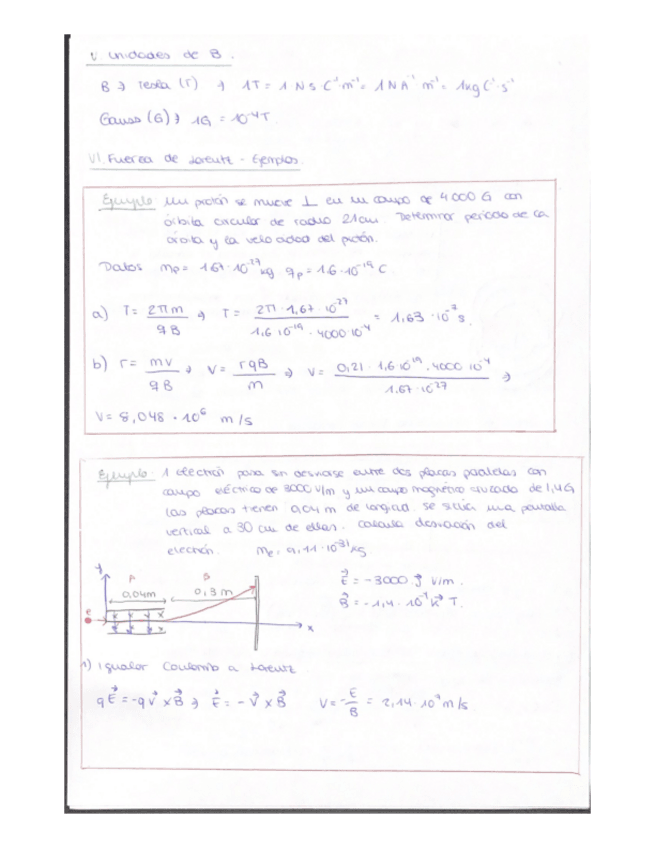 V. Unidades de B.
B → Tesla (T) → 1T = 1 N s C⁻¹ m⁻¹ = 1 N A⁻¹ m⁻¹ = 1 kg C⁻¹ s⁻¹
Gauss (G) → 1G = 10⁻⁴ T.
VI. Fuerza de Lorentz - Ejemplos.
Ejemplo: Un protón se mueve ⊥ en un campo de 4000 G con
órbita circular de radio 21cm. Determinar periodo de la
órbita y la velocidad del protón.
Datos mp = 1'67·10⁻²⁷ kg qp = 1'6·10⁻¹⁹ C
a) T = 2πm / qB → T = 2π·1,67·10⁻²⁷ / 1,6·10⁻¹⁹·4000·10⁻⁴ = 1,63·10⁻⁷ s.
b) r = mv / qB → V = rqB / m → V = 0,21·1,6·10⁻¹⁹·4000·10⁻⁴ / 1,67·10⁻²⁷ →
V = 8,048·10⁶ m/s
Ejemplo: 1 electrón pasa sin desviarse entre dos placas paralelas con
campo eléctrico de 3000 V/m y un campo magnético cruzado de 1,4 G
Las placas tienen 0,04 m de longitud. Se sitúa una pantalla
vertical a 30 cm de ellas. Calcula desviación del
electrón. me = 9,11·10⁻³¹ kg
y A B
0,04m 0,3 m
e x
E⃗ = -3000 j⃗ V/m.
B⃗ = -1,4·10⁻⁴ k⃗ T.
1) Igualar Coulomb a Lorentz.
qE⃗ = -qv⃗ × B⃗ → E⃗ = -v⃗ × B⃗ V = -E / B = 2,14·10⁷ m/s